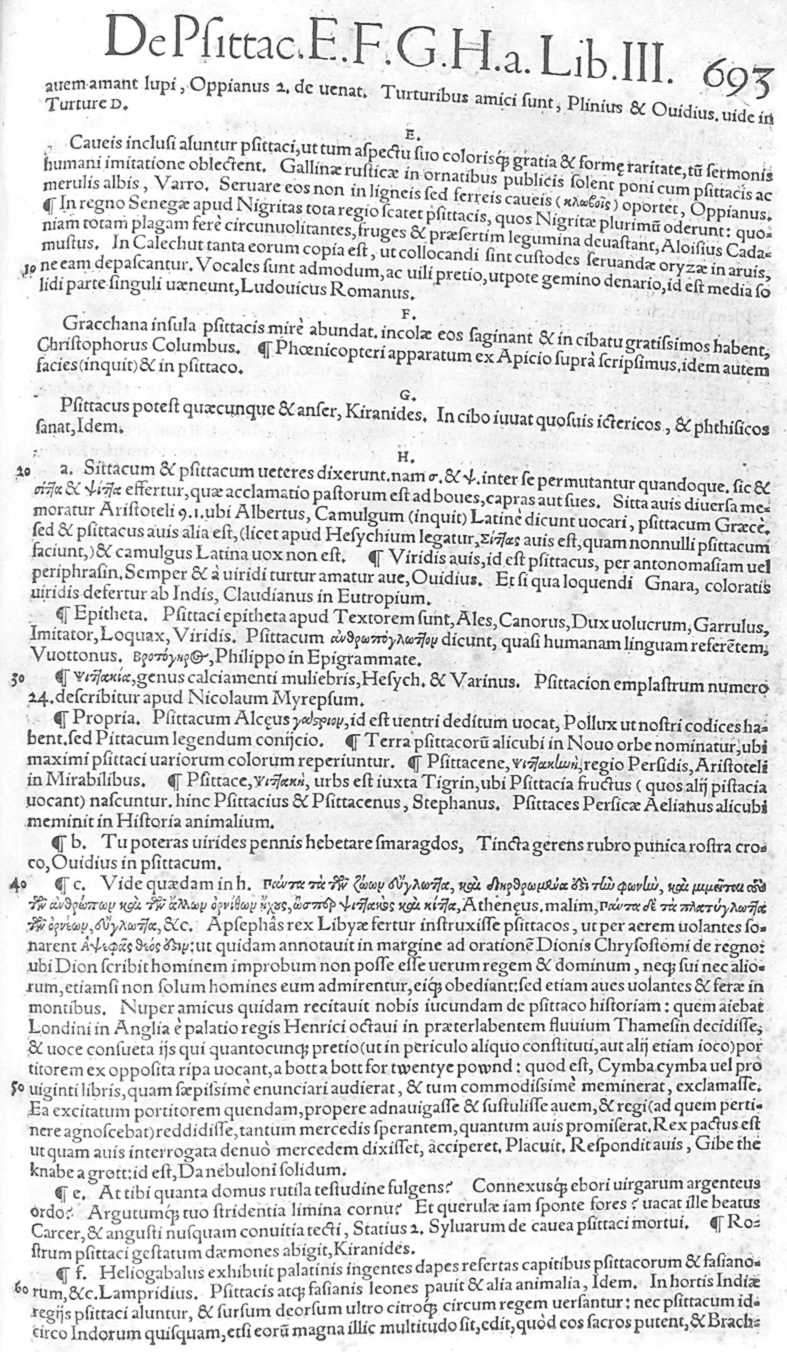 De Psittac. E. F. G. H. a. Lib. III. 693
auem amant lupi, Oppianus 2. de uenat. Turturibus amici sunt, Plinius & Ouidius. uide in
Turture D.
E.
Caueis inclusi aluntur psittaci, ut tum aspectu suo colorisq́ꝫ gratia & formę raritate, tũ sermonis
humani imitatione oblectent. Gallinæ rusticæ in ornatibus publicis solent poni cum psittacis ac
merulis albis, Varro. Seruare eos non in ligneis sed ferreis caueis (κλωβοῖς) oportet, Oppianus.
¶ In regno Senegæ apud Nigritas tota regio scatet psittacis, quos Nigritæ plurimũ oderunt: quo-
niam totam plagam ferè circunuolitantes, fruges & præsertim legumina deuastant, Aloisius Cada-
mustus. In Calechut tanta eorum copia est, ut collocandi sint custodes seruandæ oryzæ in aruis,
10 ne eam depascantur. Vocales sunt admodum, ac uili pretio, utpote gemino denario, id est media so
lidi parte singuli uæneunt, Ludouicus Romanus.
F.
Gracchana insula psittacis mirè abundat. incolæ eos saginant & in cibatu gratissimos habent,
Christophorus Columbus. ¶ Phœnicopteri apparatum ex Apicio suprà scripsimus, idem autem
facies (inquit) & in psittaco.
G.
Psittacus potest quæcunque & anser, Kiranides. In cibo iuuat quosuis ictericos, & phthisicos
sanat, Idem.
H.
20 a. Sittacum & psittacum ueteres dixerunt. nam σ. & ψ. inter se permutantur quandoque. sic &
σίτ]α & ψίτ]α effertur, quæ acclamatio pastorum est ad boues, capras aut sues. Sitta auis diuersa me-
moratur Aristoteli 9. 1. ubi Albertus, Camulgum (inquit) Latinè dicunt uocari, psittacum Græcè.
sed & psittacus auis alia est, (licet apud Hesychium legatur, Σίτ]ας auis est, quam nonnulli psittacum
faciunt,) & camulgus Latina uox non est. ¶ Viridis auis, id est psittacus, per antonomasiam uel
periphrasin. Semper & à uiridi turtur amatur aue, Ouidius. Et si qua loquendi Gnara, coloratis
uiridis defertur ab Indis, Claudianus in Eutropium.
¶ Epitheta. Psittaci epitheta apud Textorem sunt, Ales, Canorus, Dux uolucrum, Garrulus,
Imitator, Loquax, Viridis. Psittacum ἀνθρωπόγλωτ]ον dicunt, quasi humanam linguam referẽtem,
Vuottonus. Βροτόγηρυς, Philippo in Epigrammate.
30 ¶ Ψιτ]ακία, genus calciamenti muliebris, Hesych. & Varinus. Psittacion emplastrum numero
24. describitur apud Nicolaum Myrepsum.
¶ Propria. Psittacum Alcęus γάστριον, id est uentri deditum uocat, Pollux ut nostri codices ha-
bent. sed Pittacum legendum conijcio. ¶ Terra psittacorũ alicubi in Nouo orbe nominatur, ubi
maximi psittaci uariorum colorum reperiuntur. ¶ Psittacene, Ψιτ]ακινὴ, regio Persidis, Aristoteli
in Mirabilibus. ¶ Psittace, Ψιτ]ακὴ, urbs est iuxta Tigrin, ubi Psittacia fructus (quos alij pistacia
uocant) nascuntur. hinc Psittacius & Psittacenus, Stephanus. Psittaces Persicæ Aelianus alicubi
meminit in Historia animalium.
¶ b. Tu poteras uirides pennis hebetare smaragdos, Tincta gerens rubro punica rostra cro-
co, Ouidius in psittacum.
40 ¶ c. Vide quædam in h. Πάντα τὰ τῶν ζώων εὔγλωτ]α, καὶ διηρθρωμένα ἐστὶ τὴν φωνὴν, καὶ μιμεῖται
τῶν ἀνθρώπων καὶ τῶν ἄλλων ὀρνίθων ἤχους, ὥσπερ ψιτ]ακὸς καὶ κίτ]α, Athenęus. malim, Πάντα δὲ τὰ πλατύγλωτ]α
τῶν ὀρνέων, εὔγλωτ]α, &c. Apsephâs rex Libyæ fertur instruxisse psittacos, ut per aerem uolantes so-
narent Ἀψεφᾶς θεός ἐστιν: ut quidam annotauit in margine ad orationẽ Dionis Chrysostomi de regno:
ubi Dion scribit hominem improbum non posse esse uerum regem & dominum, neqꝫ sui nec alio-
rum, etiamsi non solum homines eum admirentur, eiqꝫ obediant: sed etiam aues uolantes & feræ in
montibus. Nuper amicus quidam recitauit nobis iucundam de psittaco historiam: quem aiebat
Londini in Anglia è palatio regis Henrici octaui in præterlabentem fluuium Thamesin decidisse,
& uoce consueta ijs qui quantocunqꝫ pretio (ut in periculo aliquo constituti, aut alij etiam ioco) por
titorem ex opposita ripa uocant, a bott a bott for twentye pownd: quod est, Cymba cymba uel pro
50 uiginti libris, quam sæpissimè enunciari audierat, & tum commodissimè meminerat, exclamasse.
Ea excitatum portitorem quendam, propere adnauigasse & sustulisse auem, & regi (ad quem perti-
nere agnoscebat) reddidisse, tantum mercedis sperantem, quantum auis promiserat. Rex pactus est
ut quam auis interrogata denuò mercedem dixisset, acciperet. Placuit. Respondit auis, Gibe the
knabe a grott: id est, Da nebuloni solidum.
¶ e. At tibi quanta domus rutila testudine fulgens? Connexusq́ꝫ ebori uirgarum argenteus
ordo? Argutumq́ꝫ tuo stridentia limina cornu? Et querulæ iam sponte fores? uacat ille beatus
Carcer, & angusti nusquam conuitia tecti, Statius 2. Syluarum de cauea psittaci mortui. ¶ Ro-
strum psittaci gestatum dæmones abigit, Kiranides.
¶ f. Heliogabalus exhibuit palatinis ingentes dapes refertas capitibus psittacorum & fasiano-
60 rum, &c. Lampridius. Psittacis atqꝫ fasianis leones pauit & alia animalia, Idem. In hortis Indiæ
regijs psittaci aluntur, & sursum deorsum ultro citroqꝫ circum regem uersantur: nec psittacum id-
circo Indorum quisquam, etsi eorũ magna illic multitudo sit, edit, quòd eos sacros putent, & Brach-